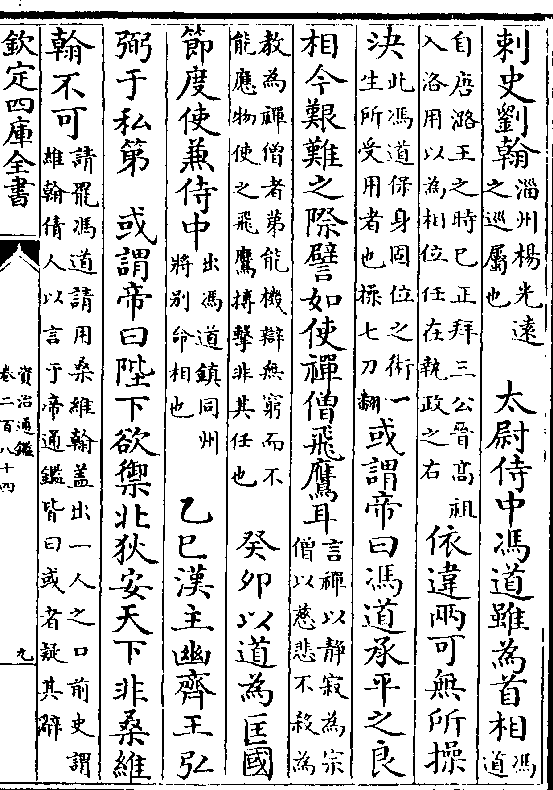 刺史劉翰淄州楊光遠之巡屬也　太尉侍中馮道雖為首相馮道
自唐潞王之時已正拜三公晉髙祖入洛用以為相位任在執政之右依違兩可無所操
决此馮道保身固位之術一生所受用者也操七刀翻或謂帝曰馮道承平之良
相今艱難之際譬如使禪僧飛鷹耳言禪以靜寂為宗僧以慈悲不殺為
教為禪僧者第能機辯無窮而不能應物使之飛鷹搏擊非其任也　癸夘以道為匡國
節度使兼侍中出馮道鎮同州將别命相也　乙巳漢主幽齊王弘
弼于私第　或謂帝曰陛下欲禦北狄安天下非桑維
翰不可請罷馮道請用桑維翰蓋出一人之口前史謂維翰倩人以言于帝通鑑皆曰或者疑其辭
欽定四庫全書
資治通鑑
卷二百八十四
九